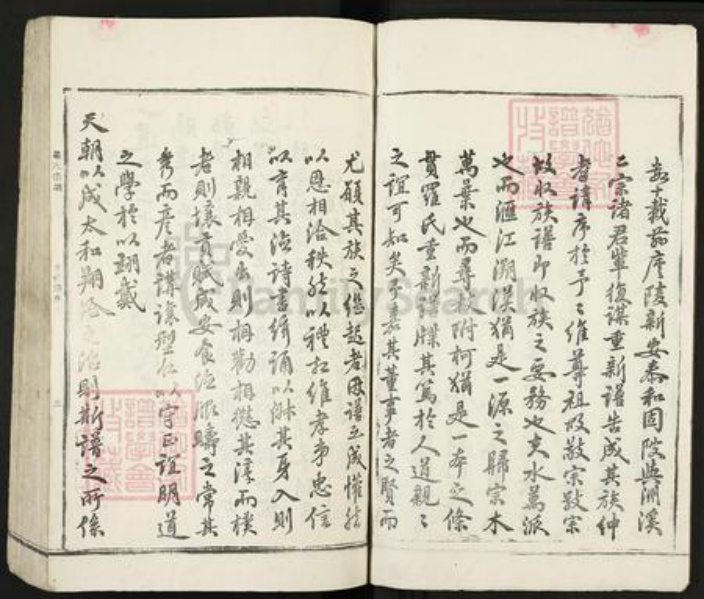 數十載前廬陵新安泰和固陂與洲溪
二宗諸君輩復謀重新譜告成其族仲
者請序於予予維尊祖故敬宗敬宗
故收族譜即收族之要務也夫水萬派
也而滙江溯漢猶是一源之歸宗木
萬葉也而尋附柯猶是一本之條
貫羅氏重新譜牒其篤於人道親親
之誼可知矣予嘉其董事者之賢而
尤願其族之繼起者毋譜玉成懽然
以恩相洽秩然以禮相維孝爭忠信
以育其德詩書絃誦以淑其身入則
相親相愛出則相勸相懲其淳而樸
者則讓賣賦成安食德服疇之常其
秀而彥者講讓型仁以守正誼明道
之學於以翊戴
天朝以成太和翔洽之治則斯譜之所係
FamilySearch